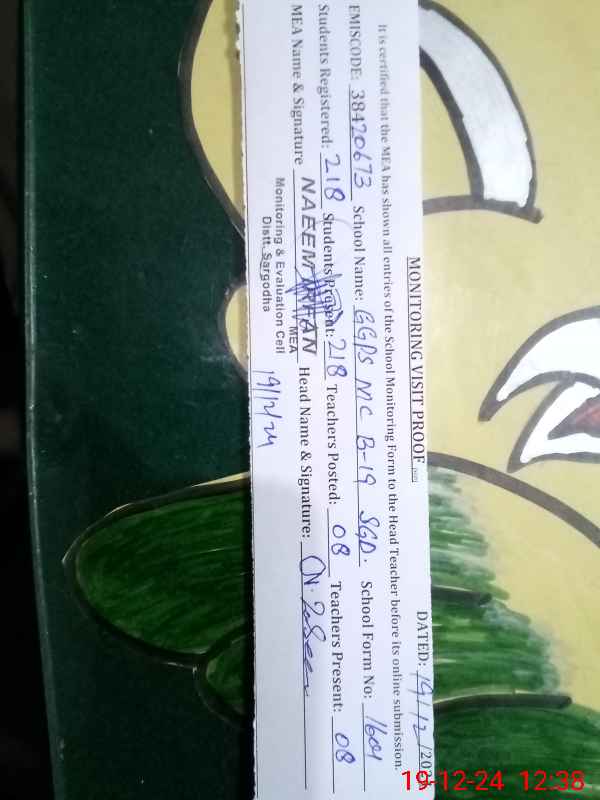 MONITORING VISIT PROOF
DATED: 19/12/202
It is certified that the MEA has shown all entries of the School Monitoring Form to the Head Teacher before its online submission.
EMISCODE: 38420673 School Name: GGPS MC B-19 SGD. School Form No: 1601
Students Registered: 218 Students Present: 218 Teachers Posted: 08 Teachers Present: 08
MEA Name & Signature NAEEM IRFAN Head Name & Signature:
MEA
Monitoring & Evaluation Cell
Distt. Sargodha
19/12/24
19-12-24 12:38